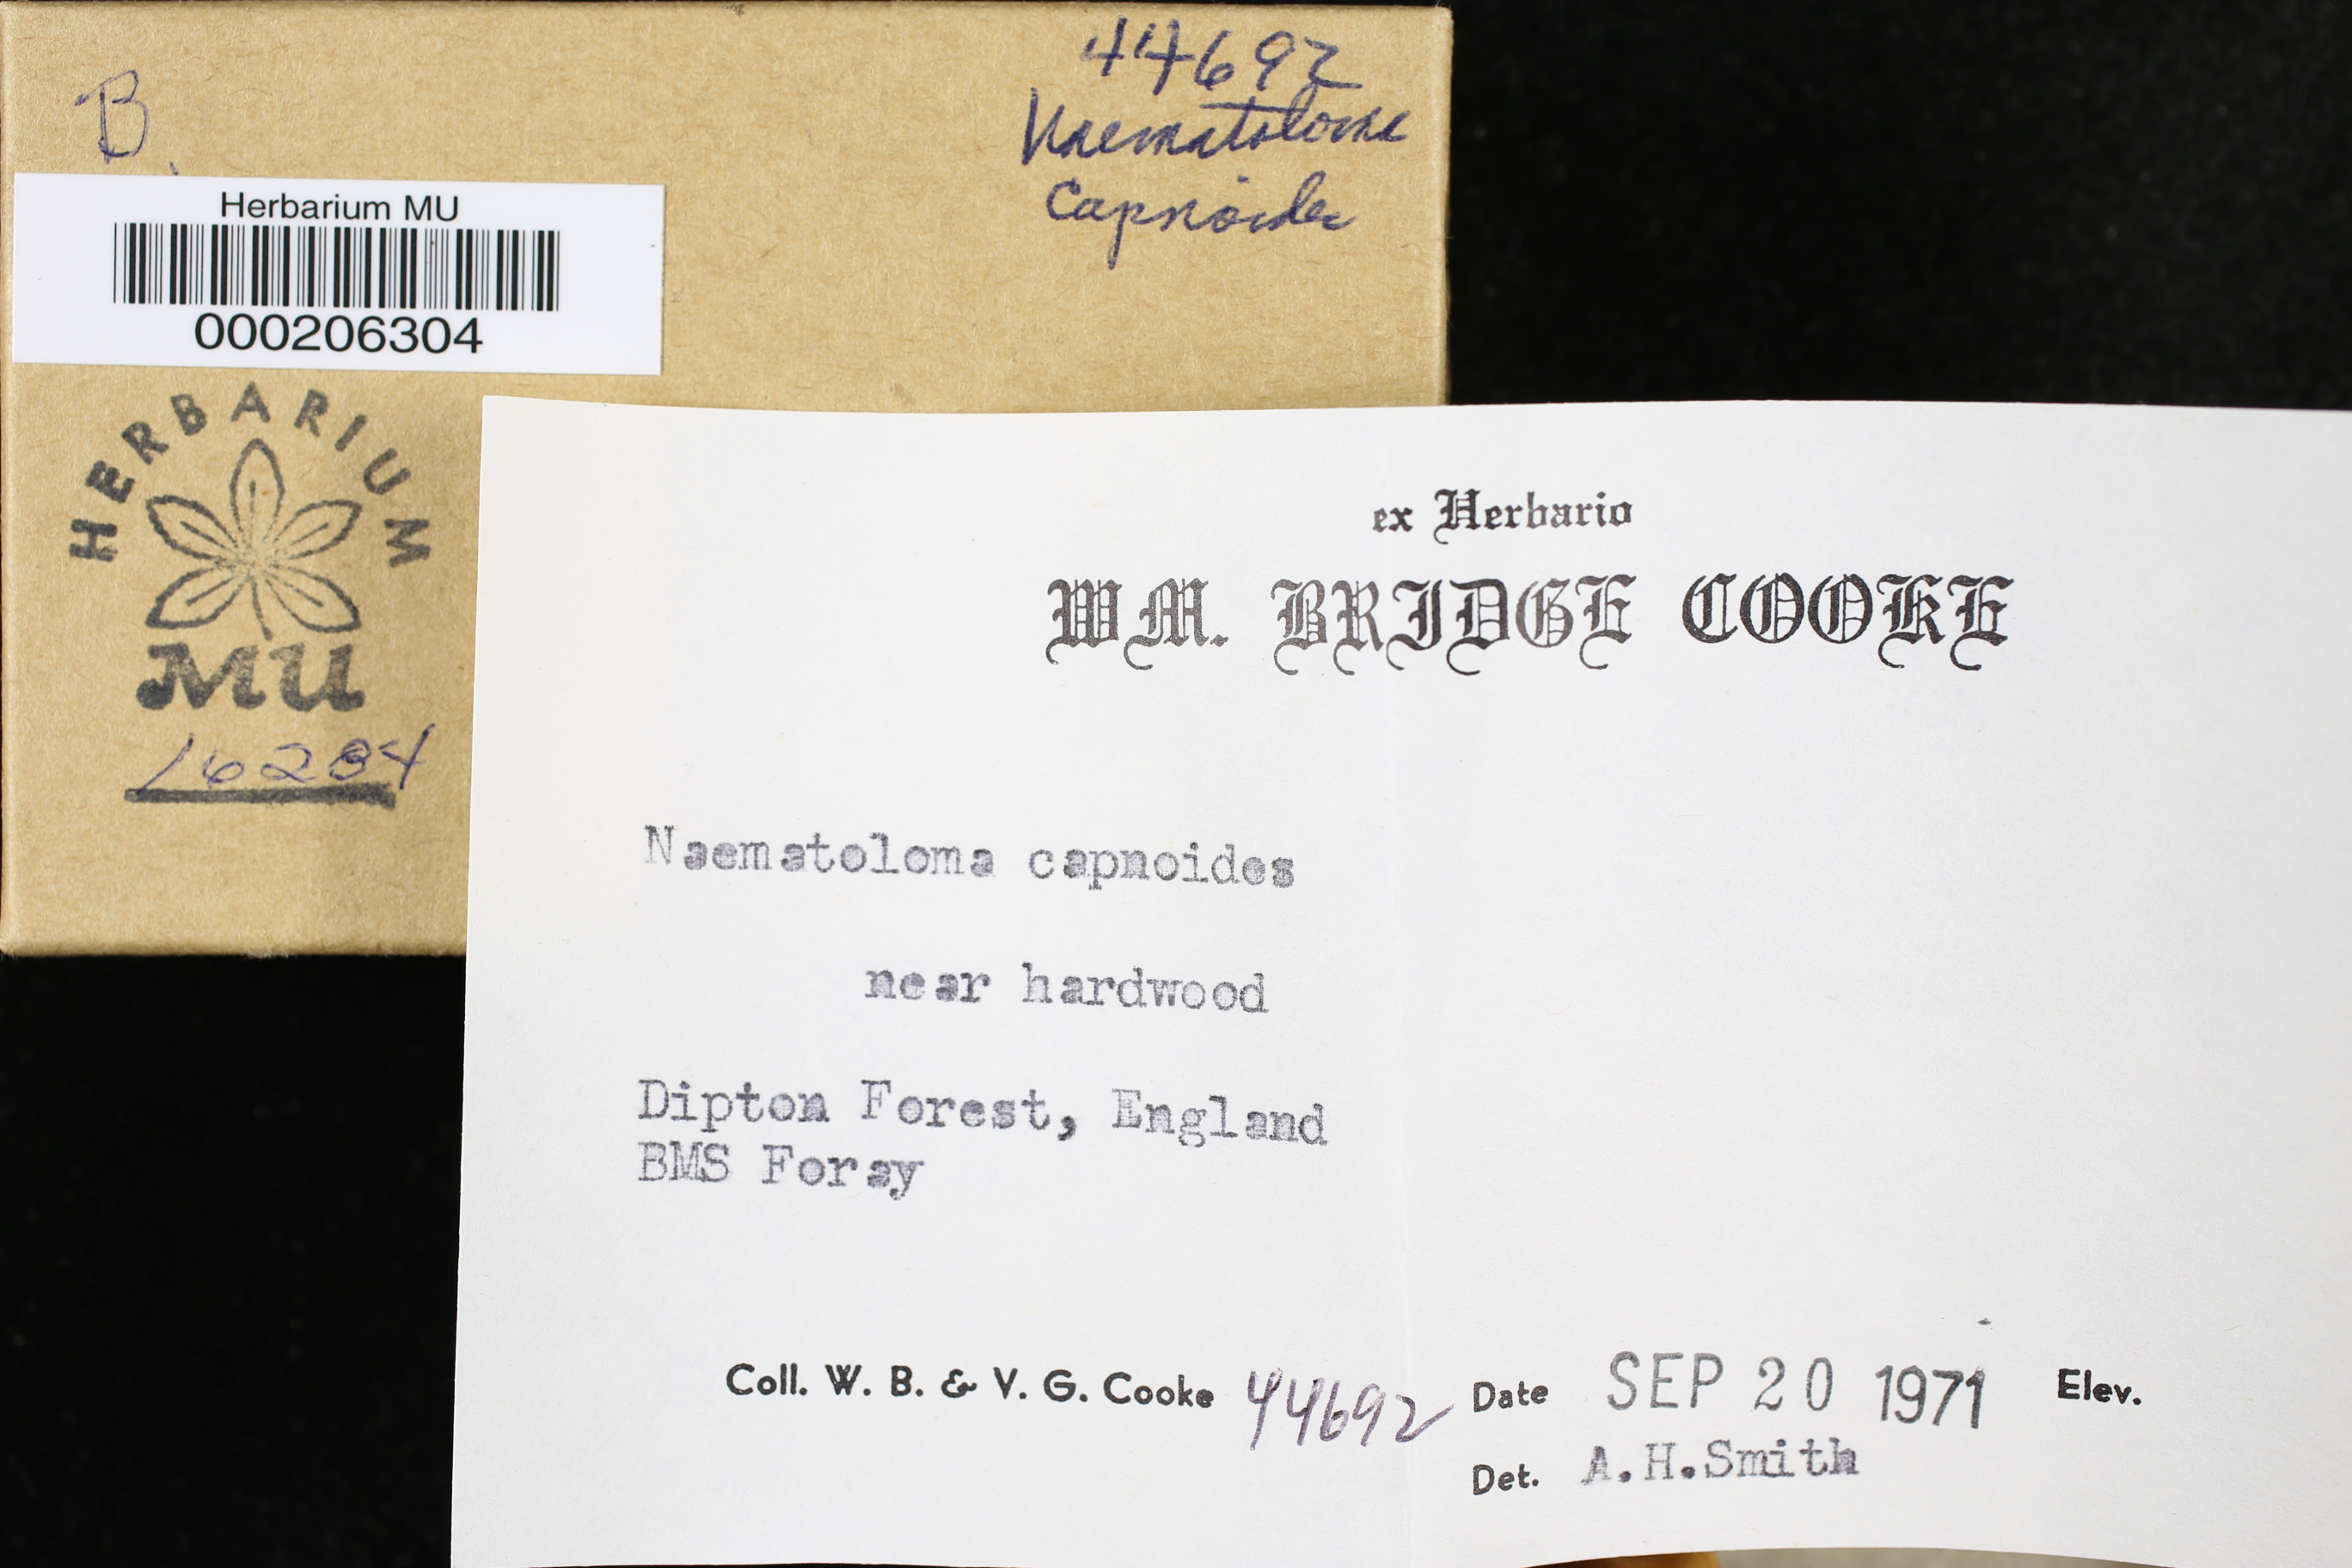 B.
44692
Naematoloma
capnoides
Herbarium MU
000206304
HERBARIUM
MU
16284
ex Herbario
WM. BRIDGE COOKE
Naematoloma capnoides
near hardwood
Dipton Forest, England
BMS Foray
Coll. W. B. & V. G. Cooke 44692 Date SEP 20 1971 Elev.
Det. A.H.Smith